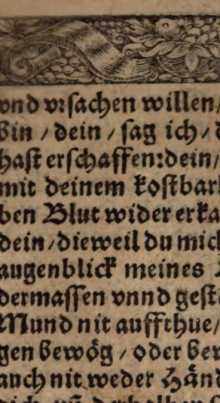 vnd vrsachen willen,
Bin / dein / sag ich / d
hast erschaffen: dein/
mit deinem kostbar
ben Blut wider erka
dein / dieweil du mich
augenblick meines
dermassen vnnd gest
Mund nit auffthue/
gen bewög / oder ber
auch nit weder Händ